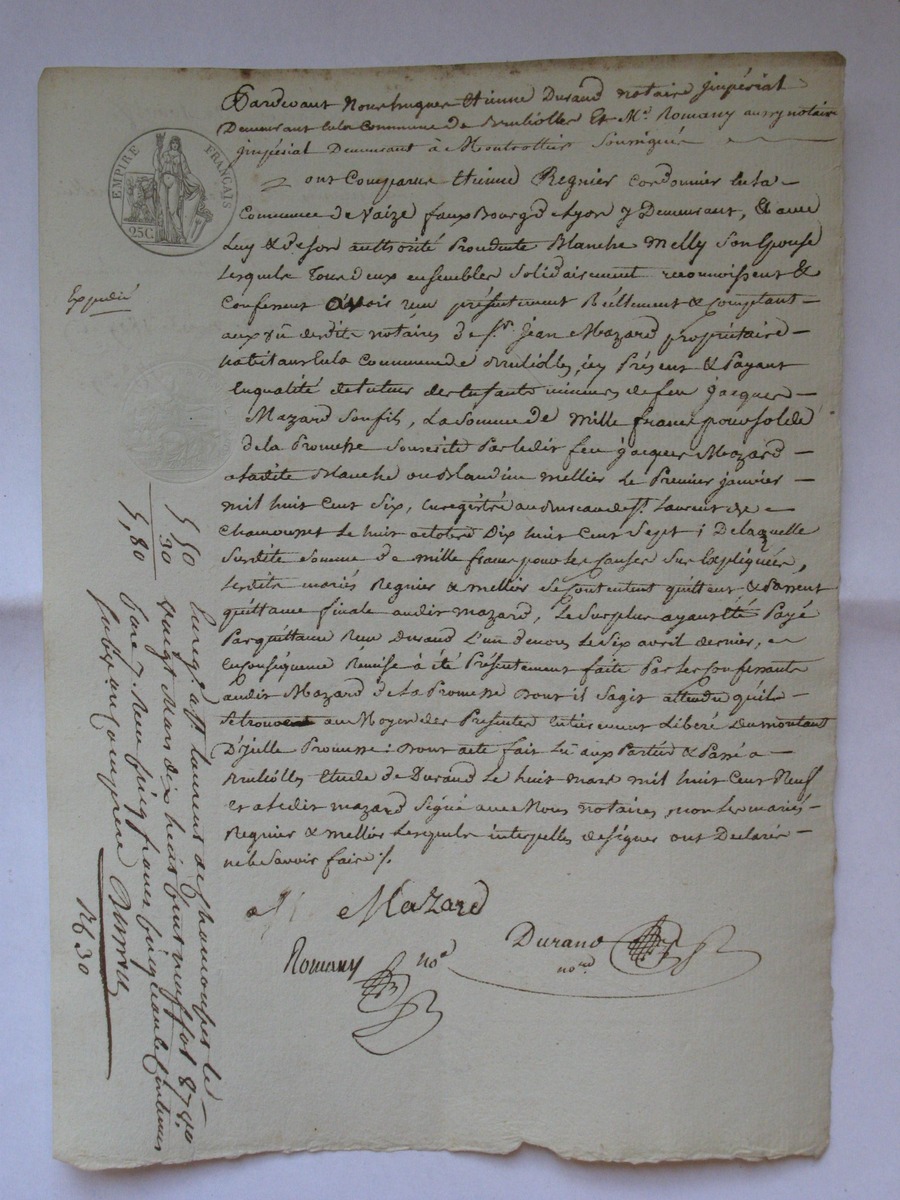 Pardevant Nous hugues Etienne Durand notaire jmpérial
Demeurant en la Commune de Brulioller Et Me. Romany aussy notaire
jmpérial Demeurant à Montrottier Soussignés
ont Comparus Etienne Regnier Cordonnier en la
Commune de Vaize fauxBourg de Lyon y Demeurant, & avec
Luy & de son authorité Procédente Blanche Melly son Epouse
Lesquels tous deux ensembles solidairement reconnoissent &
Confessent avoir reçu présentement Réellement & Comptant
aux vû desdits notaires de sr. jean Mazard propriétaire
habitant en la Commune de Brulioller icy Présent & Payant
En qualité de tuteur des Enfants mineurs de feu jacques
Mazard son fils, La somme de mille francs pour solde
de la Promesse souscrite Par ledit feu jacques Mazard
a ladite Blanche ou Blandine mellier Le Premier janvier
mil huit Cent Six, Enregistrée au Bureau de st. Laurent de
Chamousset Le huit octobre Dix huit Cent Sept ; De laquelle
Susdite Somme de mille francs pour les Causes Sus Expliquées,
Lesdits mariés Regnier & mellier se Contentent quittent & Passent
quittance finale audit mazard, Le Surplus ayant été Payé
Par quittance Reçu Durand L'un de nous Le Six avril dernier, en
Conséquence Remise à été Présentement faite Par les Confessants
audit Mazard de La Promesse Dont il Sagit attendu quils
se trouvent au Moyen des Présentes Entièrement Libéré Du montant
D'jcelle Promesse : Dont acte fait Lû aux Parties & Passé a
Brulioller Etude de Durand Le huit mars mil huit Cent Neuf
Et a Ledit mazard Signé avec Nous notaires, non Les mariés
Regnier & mellier Lesquels interpellés de signer ont Déclarés
ne le Savoir faire /.
Mazard
Romany noe
Durand
nore
EMPIRE FRANÇAIS
25C
Expedié
5, 50
30
5, 80
Enregé. a st Laurent de Chamousset le
vingt Mars dix huit Cent neuf fol 87
Reçu Cinq francs Cinquante Centimes
76 30